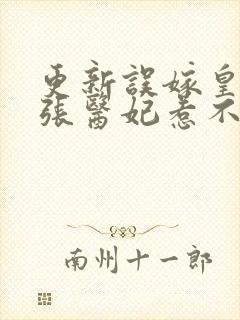 更新誤嫁皇
張醫妃惹不
南州十一郎